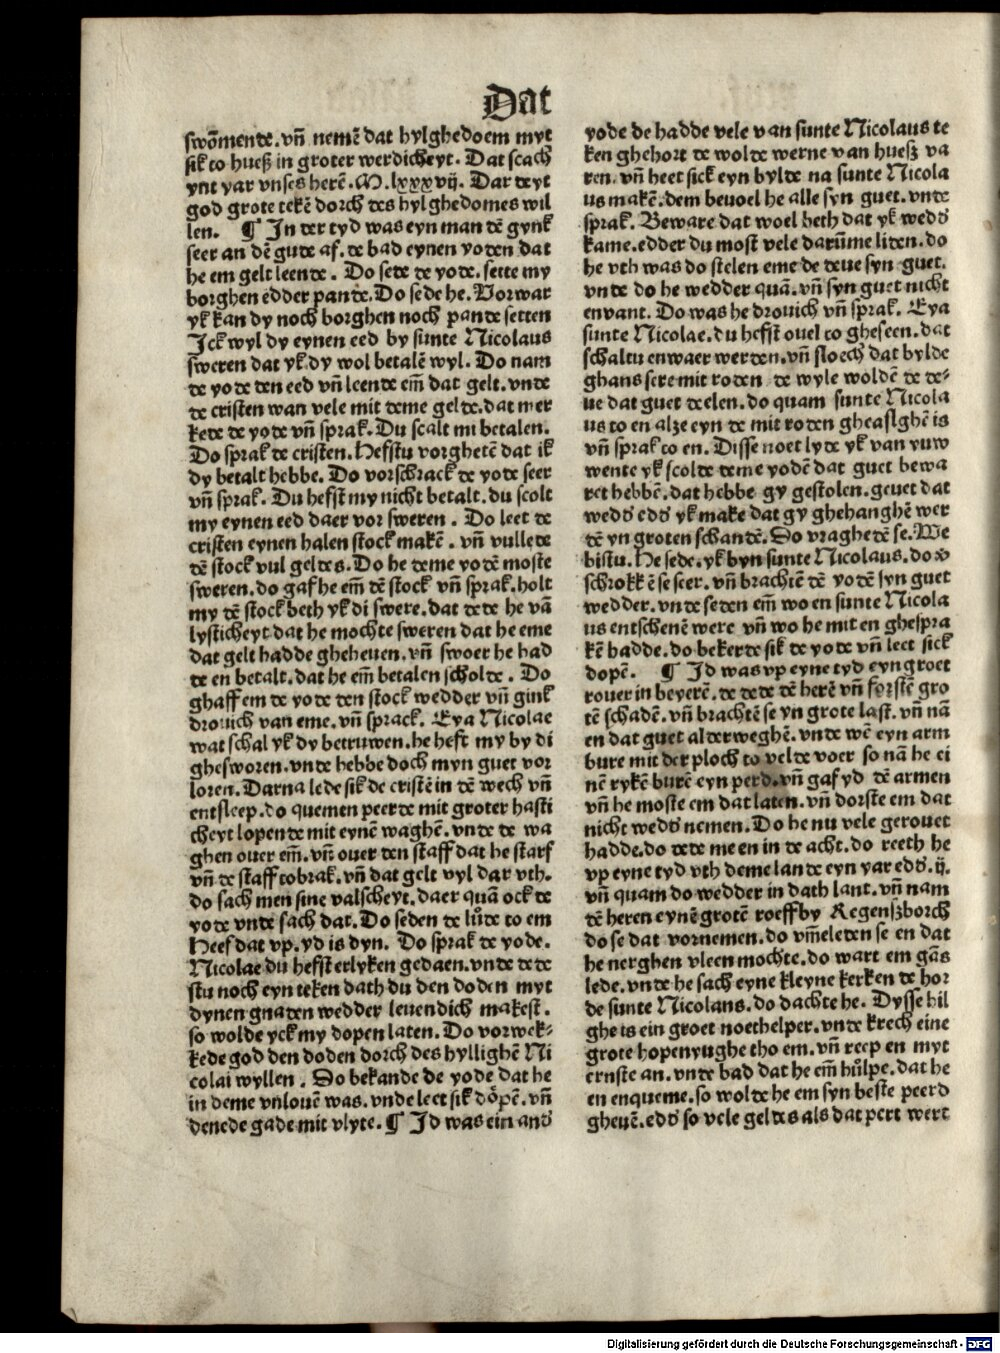 Dat
swōmende. vn̄ nemē dat hylghedoem myt
sik to hueß in groter werdicheyt. Dat scach
ynt yar vnses herē. M. lxxxvij. Dar deyt
god grote tekē dorch des hylghedomes wil
len. ¶ In der tyd was eyn man dē gynk
seer an dē gude af. de bad eynen yoden dat
he em gelt leende. Do sede de yode. sette my
borghen edder pande. Do sede he. Vorwar
yk kan dy noch borghen noch pande setten
Ick wyl dy eynen eed by sunte Nicolaus
sweren dat yk dy wol betalē wyl. Do nam
de yode den eed vn̄ leende em̄ dat gelt. vnde
de cristen wan vele mit deme gelde. dat mer
kede de yode vn̄ sprak. Du scalt mi betalen.
Do sprak de cristen. Hefstu vorghetē dat ik
dy betalt hebbe. Do vorschrack de yode seer
vn̄ sprak. Du hefst my nicht betalt. du scolt
my eynen eed daer vor sweren. Do leet de
cristen eynen halen stock makē. vn̄ vullede
dē stock vul geldes. Do he deme yodē moste
sweren. do gaf he em̄ dē stock vn̄ sprak. holt
my dē stock beth yk di swere. dat dede he vā
lysticheyt dat he mochte sweren dat he eme
dat gelt hadde gheheuen. vn̄ swoer he had
de en betalt. dat he em̄ betalen scholde. Do
ghaff em de yode den stock wedder vn̄ gink
drouich van eme. vn̄ sprack. Eya Nicolae
wat schal yk dy betruwen. he heft my by di
ghesworen. vnde hebbe doch myn guet vor
loren. Darna lede sik de cristē in dē wech vn̄
entsleep. do quemen peerde mit groter hasti
cheyt lopende mit eynē waghē. vnde de wa
ghen ouer em̄. vn̄ ouer den staff dat he starf
vn̄ de staff tobrak. vn̄ dat gelt vyl dar vth.
do sach men sine valscheyt. daer quā ock de
yode vnde sach dat. Do seden de lůde to em
Heef dat vp. yd is dyn. Do sprak de yode.
Nicolae du hefst erlyken gedaen. vnde dede
stu noch eyn teken dath du den doden myt
dynen gnaden wedder leuendich makest.
so wolde yck my dopen laten. Do vorwek⸗
kede god den doden dorch des hyllighē Ni
colai wyllen. So bekande de yode dat he
in deme vnlouē was. vnde leet sik dȯpē. vn̄
denede gade mit vlyte. ¶ Id was ein ands
yode de hadde vele van sunte Nicolaus te
ken ghehort de wolde werne van hueß va
ren. vn̄ heet sick eyn bylde na sunte Nicola
us makē. dem beuoel he alle syn guet. vnde
sprak. Beware dat woel beth dat yk weds
kame. edder du most vele darūme liden. do
he vth was do stelen eme de deue syn guet.
vnde do he wedder quā. vn̄ syn guet nicht
envant. Do was he drouich vn̄ sprak. Eya
sunte Nicolae. du hefst ouel to gheseen. dat
schaltu enwaer werden. vn̄ sloech dat bylde
ghans sere mit roden de wyle woldē de de⸗
ue dat guet deelen. do quam sunte Nicola
us to en alze eyn de mit roden gheaslghē is
vn̄ sprak to en. Disse noet lyde yk van yuw
wente yk scolde deme yodē dat guet bewa
ret hebbē. dat hebbe gy gestolen. geuet dat
weds eds yk make dat gy ghehanghē wer
dē yn groten schandē. So vraghedē se. We
bistu. He sede. yk byn sunte Nicolaus. do v
schrokkē se seer. vn̄ brachtē dē yodē syn guet
wedder. vnde seden em̄ wo en sunte Nicola
us entschenē were vn̄ wo he mit en ghespra
kē hadde. do bekerde sik de yode vn̄ leet sick
dopē. ¶ Id was vp eyne tyd eyn groet
rouer in beyerē. de dede dē herē vn̄ forstē gro
tē schadē. vn̄ brachtē se yn grote last. vn̄ nā
en dat guet alderweghē. vnde wē eyn arm
bure mit der ploch to velde voer so nā he ei
nē rykē burē eyn perd. vn̄ gaf yd dē armen
vn̄ he moste em dat laten. vn̄ dorste em dat
nicht weds nemen. Do he nu vele gerouet
hadde. do dede me en in de acht. do reeth he
vp eyne tyd vth deme lande eyn yar eds. ij.
vn̄ quam do wedder in dath lant. vn̄ nam
dē heren eynē grotē roeff by Regenßborch
do se dat vornemen. do vm̄eleden se en dat
he nerghen vleen mochte. do wart em gās
lede. vnde he sach eyne kleyne kerken de hor
de sunte Nicolaus. do dachte he. Dysse hil
ghe is ein groet noethelper. vnde krech eine
grote hopenynghe tho em. vn̄ reep en myt
ernste an. vnde bad dat he em̄ hůlpe. dat he
en enqueme. so wolde he em syn beste peerd
gheuē. eds so vele geldes als dat pert wert
Digitalisierung gefördert durch die Deutsche Forschungsgemeinschaft - DFG